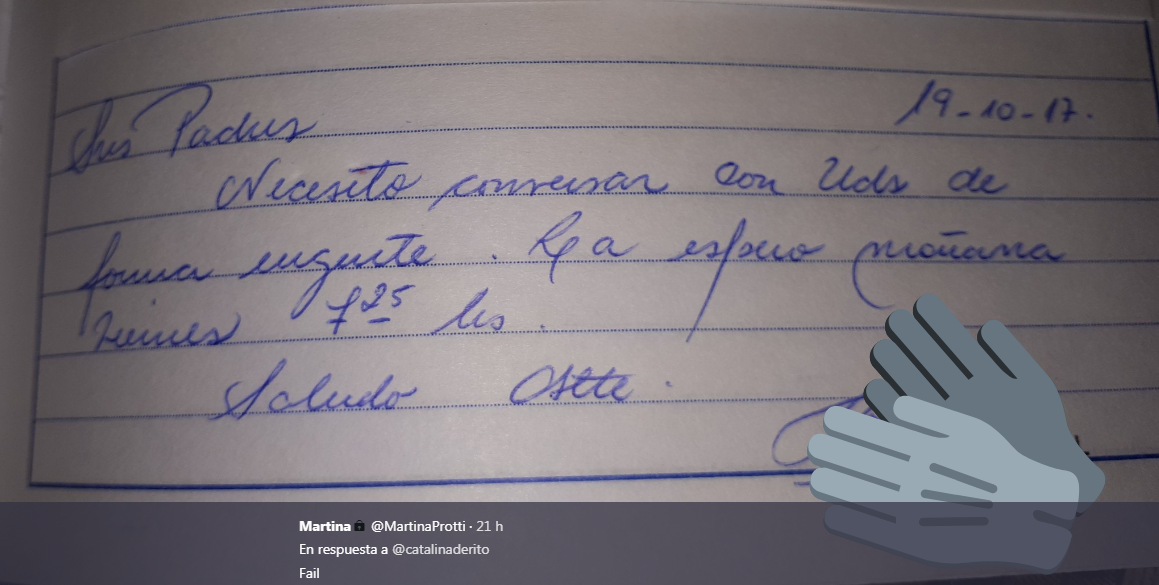 19-10-17.
Srs Padres
Necesito conversar con Uds de
forma urgente. La espero mañana
viernes 7 25 hrs.
Saludo Atte.
Martina @MartinaProtti · 21 h
En respuesta a @catalinaderito
Fail